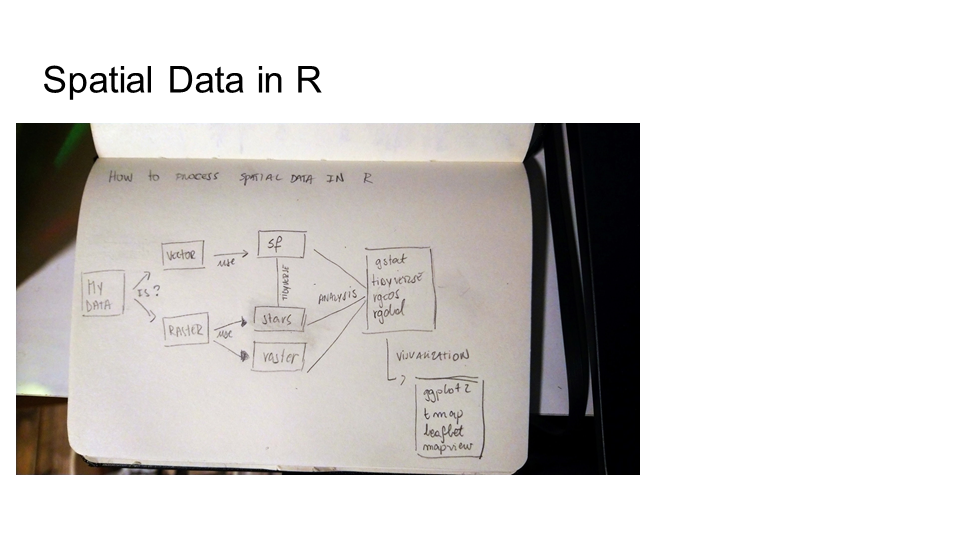 Spatial Data in R
HOW TO PROCESS SPATIAL DATA IN R
MY
DATA
IS?
VECTOR
USE
sf
TIDYVERSE
RASTER
USE
stars
raster
ANALYSIS
gstat
tidyVERSE
rgeos
rgdal
VISUALIZATION
ggplot2
tmap
leaflet
mapview